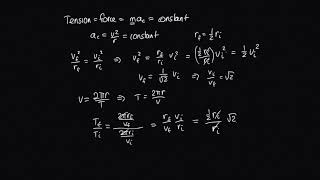 Tension = force = ma_c = constant
a_c = v²/r = constant r_f = ½ r_i
v_f²/r_f = v_i²/r_i ⇒ v_f² = r_f/r_i v_i² = (½r_i/r_i) v_i² = ½ v_i²
v_f = 1/√2 v_i ⇒ v_i/v_f = √2
v = 2πr/T ⇒ T = 2πr/v
T_f/T_i = (2πr_f/v_f)/(2πr_i/v_i) = r_f/v_f v_i/r_i = ½r_i/r_i √2